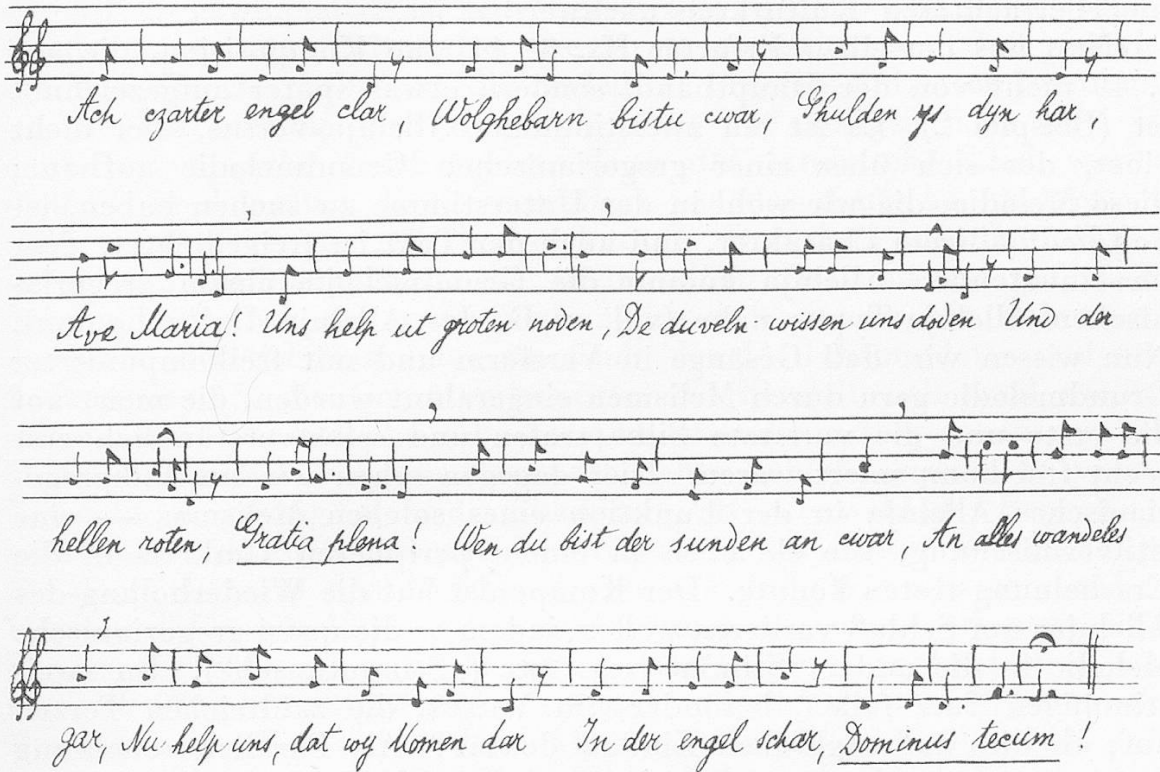 Ach czarter engel clar, Wolghebarn bistu cwar, Ghulden ys dyn har
Ave Maria! Uns help ut groten noden, De duveln wissen uns doden Und der
hellen roten, Gratia plena! Wen du bist der sunden an cwar, An alles wandeles
gar, Nu help uns, dat wy komen dar In der engel schar, Dominus tecum!